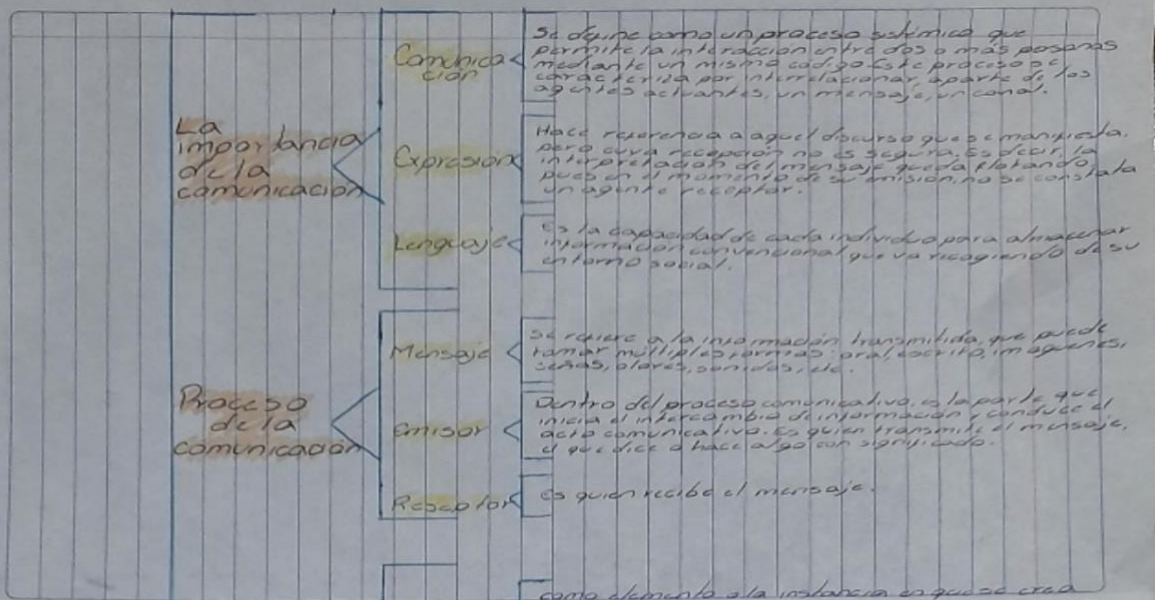 La
importancia
de la
comunicación
Comunica
ción
Se define como un proceso sistémico que
permite la interacción entre dos o más personas
mediante un mismo código. Este proceso se
caracteriza por interrelacionar, aparte de los
agentes actuantes, un mensaje, un canal.
Expresión
Hace referencia a aquel discurso que se manifiesta,
pero cuya recepción no es segura, es decir, la
interpretación del mensaje queda flotando,
pues en el momento de su emisión, no se constata
un agente receptor.
Lenguaje
Es la capacidad de cada individuo para almacenar
información convencional que va recogiendo de su
entorno social.
Proceso
de la
comunicación
Mensaje
Se refiere a la información transmitida, que puede
tomar múltiples formas: oral, escrito, imaguenes,
señas, olores, sonidos, etc.
emisor
Dentro del proceso comunicativo, es la parte que
inicia el intercambio de información y conduce el
acto comunicativo. Es quien transmite el mensaje,
el que dice o hace algo con significado.
Reseptor
es quien recibe el mensaje.
como elemento a la instancia en que se crea